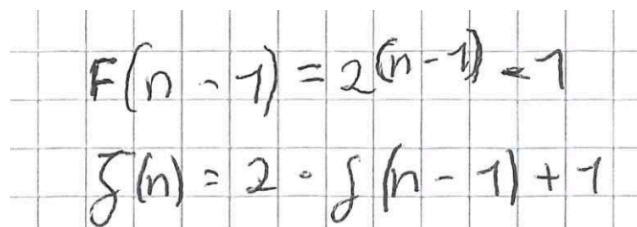 F(n - 1) = 2^(n - 1) - 1
f(n) = 2 · f(n - 1) + 1